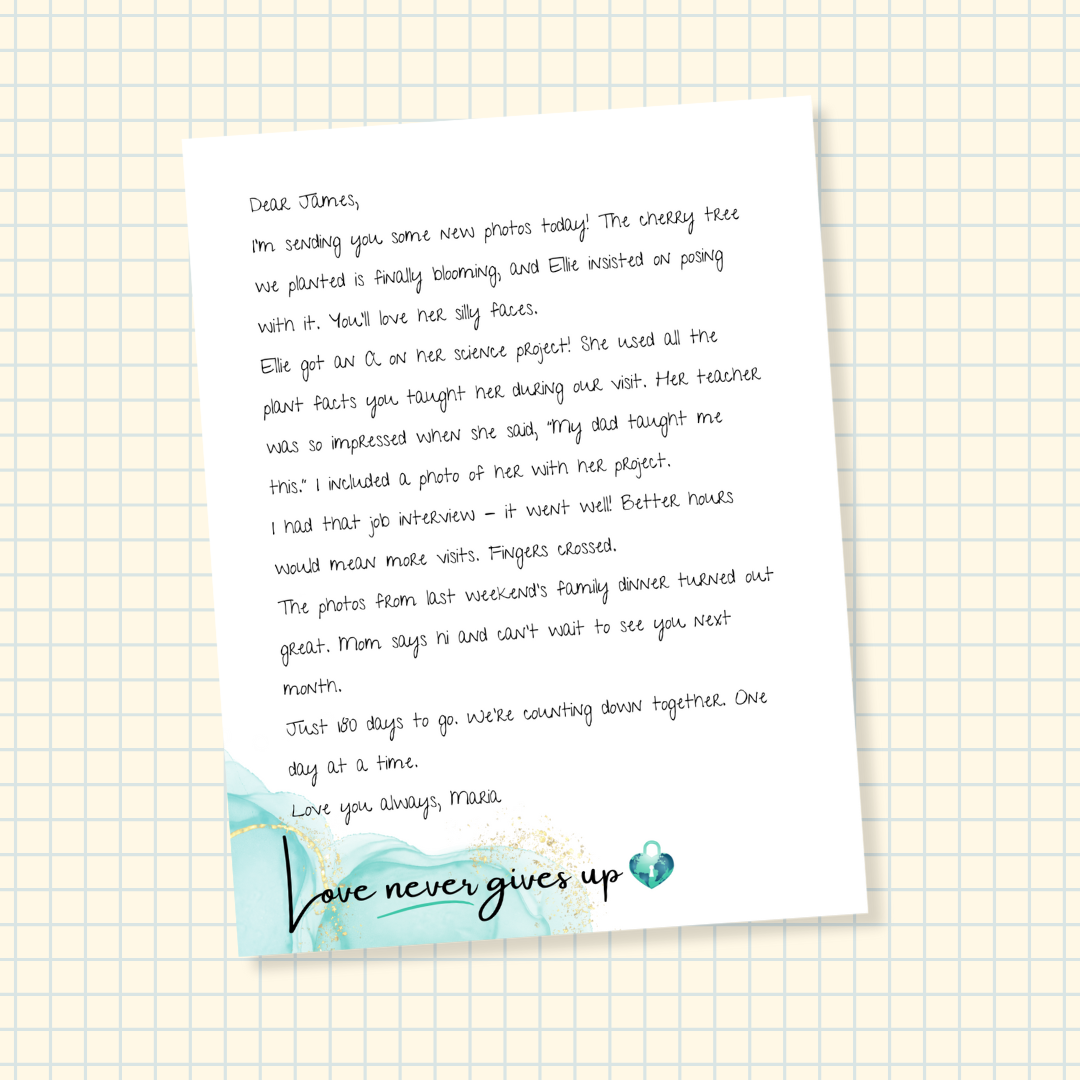 Dear James,
I'm sending you some new photos today! The cherry tree
we planted is finally blooming, and Ellie insisted on posing
with it. You'll love her silly faces.
Ellie got an A on her science project! She used all the
plant facts you taught her during our visit. Her teacher
was so impressed when she said, "My dad taught me
this." I included a photo of her with her project.
I had that job interview – it went well! Better hours
would mean more visits. Fingers crossed.
The photos from last weekend's family dinner turned out
great. Mom says hi and can't wait to see you next
month.
Just 180 days to go. We're counting down together. One
day at a time.
Love you always, Maria
Love never gives up